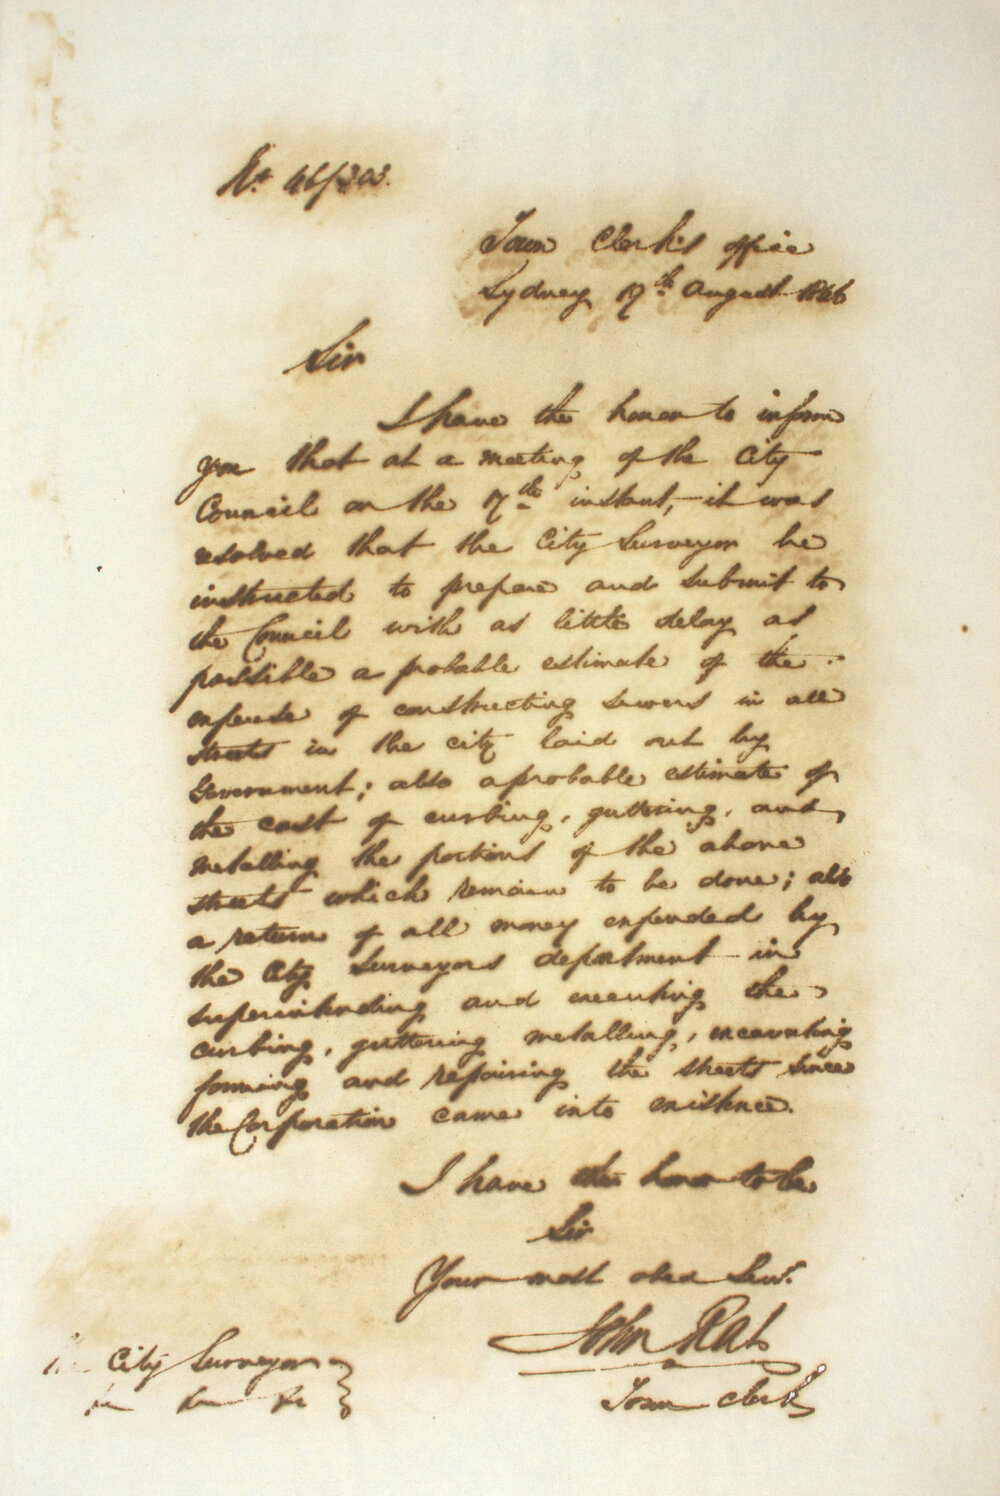 No. 46/303.
Town Clerk's office
Sydney 19th August 1846
Sir
I have the honor to inform
you that at a meeting of the City
Council on the 17th instant, it was
resolved that the City Surveyor be
instructed to prepare and submit to
the Council with as little delay as
possible a probable estimate of the
expense of constructing sewers in all
streets in the city laid out by
Government; also a probable estimate of
the cost of curbing, guttering, and
metalling the portions of the above
streets which remain to be done; also
a return of all money expended by
the City Surveyors department in
superintending and executing the
curbing, guttering metalling, excavating
forming and repairing the streets since
the Corporation came into existence.
I have the honor to be
Sir
Your most obed Serv.
John Rae
Town Clerk
City Surveyor